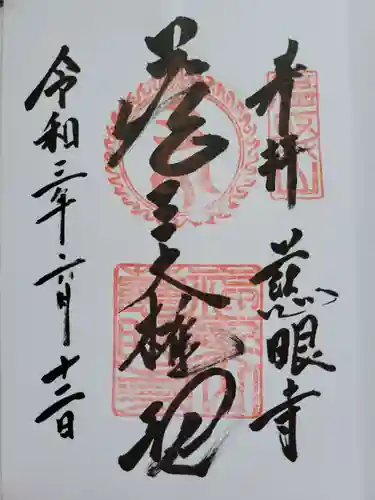 奉拝　慈眼寺
蔵王大権現
令和三年六月十二日